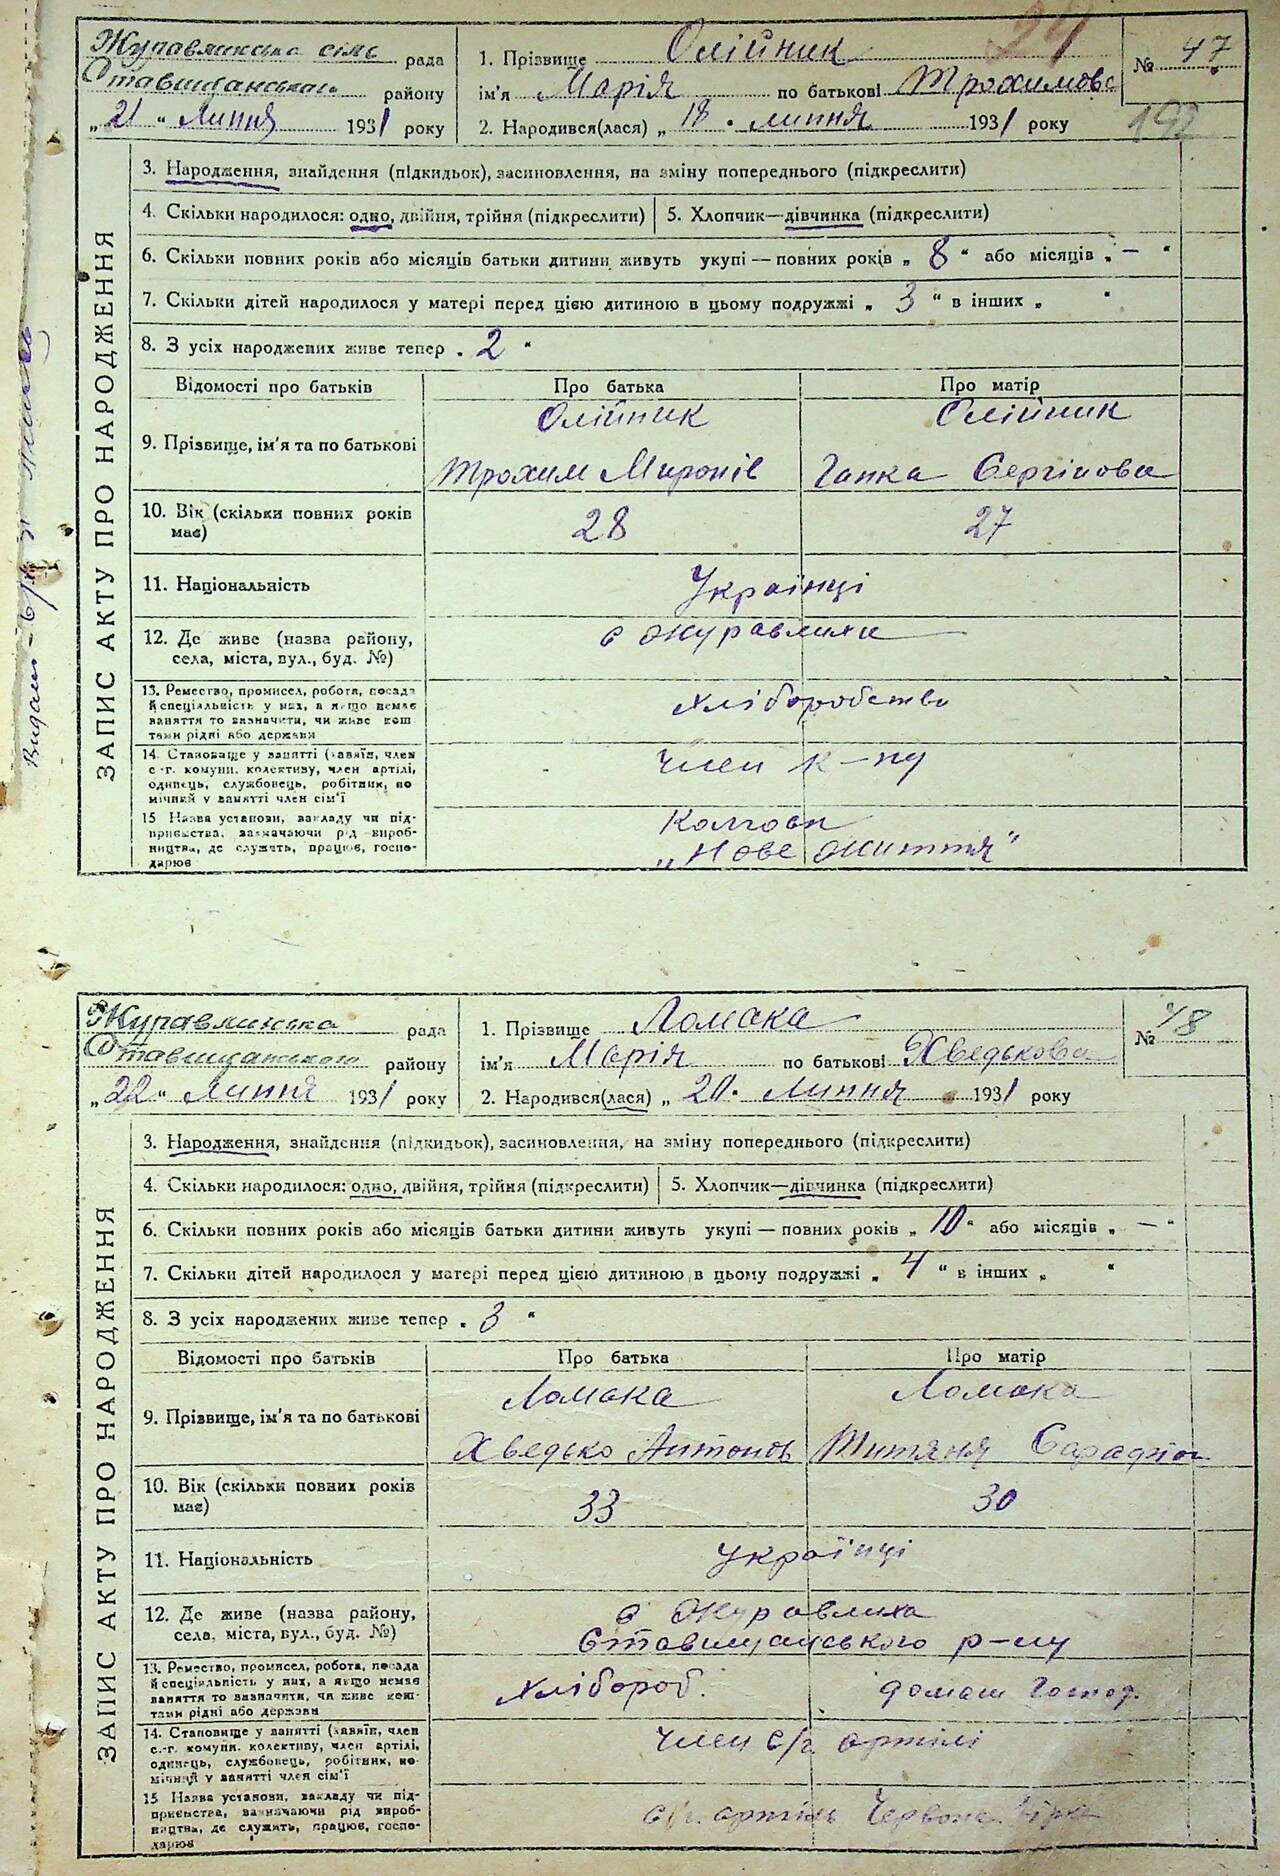 24
Журавлинська сіль рада
Ставищанського району
„21“ Липня 1931 року
1. Прізвище Олійник
ім'я Марія по батькові Трохимовс
2. Народився(лася) „18. липня 1931 року
№ 47
192
ЗАПИС АКТУ ПРО НАРОДЖЕННЯ
3. Народження, знайдення (підкидьок), засиновлення, на зміну попереднього (підкреслити)
4. Скільки народилося: одно, двійня, трійня (підкреслити) 5. Хлопчик—дівчинка (підкреслити)
6. Скільки повних років або місяців батьки дитини живуть укупі — повних років „ 8 “ або місяців „ — “
7. Скільки дітей народилося у матері перед цією дитиною в цьому подружжі „ 3 “ в інших „ “
8. З усіх народжених живе тепер „ 2 “
Відомості про батьків Про батька Про матір
9. Прізвище, ім'я та по батькові
Олійник Олійник
Трохим Миронів Гапка Сергіновa
10. Вік (скільки повних років має) 28 27
11. Національність Українці
12. Де живе (назва району,
села, міста, вул., буд. №)
с Журавлиха
13. Ремество, промисел, робота, посада
й спеціяльність у них, а якщо немає
заняття то зазначити, чи живе кош
тами рідні або держави
хліборобство
14. Становище у занятті (хазяїн, член
с.-г. комуни, колективу, член артілі,
одинець, службовець, робітник, по
мічний у занятті член сім'ї
член к-пу
15 Назва установи, закладу чи під-
приємства, зазначаючи рід вироб-
ництва, де служить, працює, госпо-
дарює
Колгосп
„Нове життя“
Видано
Журавлинська рада
Ставищанського району
„22“ Липня 1931 року
1. Прізвище Ломака
ім'я Марія по батькові Хведькова
2. Народився(лася) „20. Липня 1931 року
№ 48
ЗАПИС АКТУ ПРО НАРОДЖЕННЯ
3. Народження, знайдення (підкидьок), засиновлення, на зміну попереднього (підкреслити)
4. Скільки народилося: одно, двійня, трійня (підкреслити) 5. Хлопчик—дівчинка (підкреслити)
6. Скільки повних років або місяців батьки дитини живуть укупі — повних років „ 10 “ або місяців „ — “
7. Скільки дітей народилося у матері перед цією дитиною в цьому подружжі „ 4 “ в інших „ “
8. З усіх народжених живе тепер „ 3 “
Відомості про батьків Про батька Про матір
9. Прізвище, ім'я та по батькові
Ломака Ломака
Хведько Антонов Титяня
10. Вік (скільки повних років
має)
33 30
11. Національність Українці
12. Де живе (назва району,
села, міста, вул., буд. №)
с Журавлиха
Ставищанського р-ну
13. Ремество, промисел, робота, посада
й спеціяльність у них, а якщо немає
заняття то зазначити, чи живе кош-
тами рідні або держави
хлібороб. домаш господ.
14. Становище у занятті (хазяїн, член
с.-г. комуни, колективу, член артілі,
одинець, службовець, робітник, по-
мічний у занятті член сім'ї
член с/г артілі
15 Назва установи, закладу чи під-
приємства, зазначаючи рід вироб-
ництва, де служить, працює, госпо-
дарює
с/г. артіль Червона Зірка